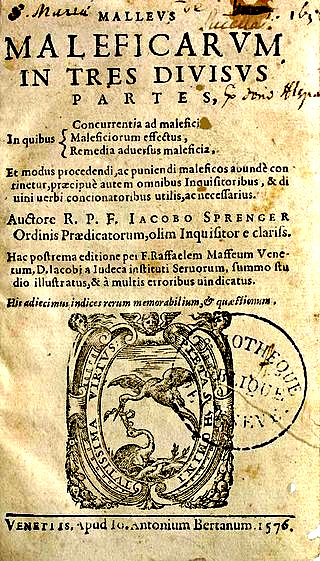 S. Maria
MALLEVS
MALEFICARVM
IN TRES DIVISVS
PARTES,
In quibus { Concurrentia ad malefici
Maleficiorum effectus,
Remedia aduersus maleficia,
Et modus procedendi, ac puniendi maleficos abundè con
tinetur, præcipuè autem omnibus Inquisitoribus, & di
uini uerbi concionatoribus utilis, ac necessarius.
Auctore R. P. F. IACOBO SPRENGER
Ordinis Prædicatorum, olim Inquisitore clariss.
Hac postrema editione per F. Raffaelem Maffeum Vene-
tum, D. Iacobi a Iudeca instituti Seruorum, summo stu
dio illustratus, & à multis erroribus uindicatus.
His adiecimus indices rerum memorabilium, & quæstionum.
PIETAS HOMINI
TVTISSIMA VIRTVS
OTHEQUE
VENETIIS, Apud Io. Antonium Bertanum. 1576.